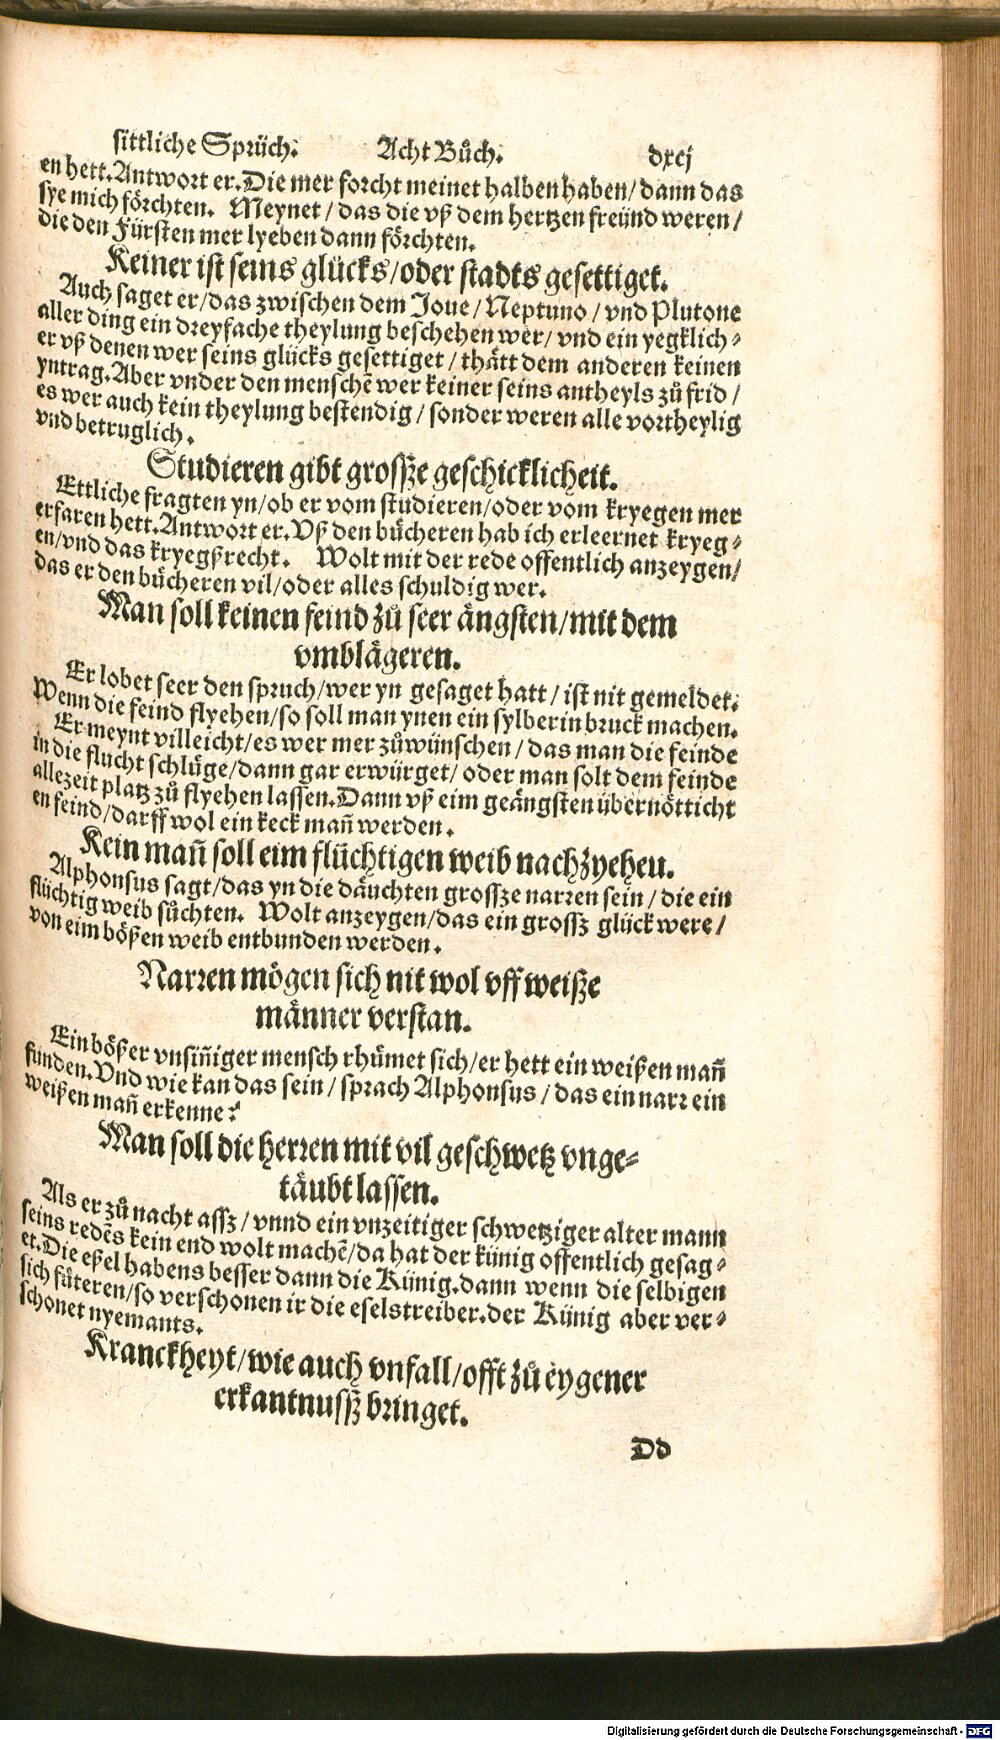 sittliche Sprüch. Acht Bůch. dxcj
en hett. Antwort er. Die mer forcht meinet halben haben / dann das
sye mich förchten. Meynet / das die vß dem hertzen freünd weren /
die den Fürsten mer lyeben dann förchten.
Keiner ist seins glücks / oder stadts gesettiget.
Auch saget er / das zwischen dem Joue / Neptuno / vnd Plutone
aller ding ein dreyfache theylung beschehen wer / vnd ein yegklich⸗
er vß denen wer seins glücks gesettiget / thätt dem anderen keinen
yntrag. Aber vnder den menschẽ wer keiner seins antheyls zů frid /
es wer auch kein theylung bestendig / sonder weren alle vortheylig
vnd betruglich.
Studieren gibt grossze geschicklicheit.
Ettliche fragten yn / ob er vom studieren / oder vom kryegen mer
erfaren hett. Antwort er. Vß den bücheren hab ich erleernet kryeg⸗
en / vnd das kryegßrecht. Wolt mit der rede offentlich anzeygen /
das er den bücheren vil / oder alles schuldig wer.
Man soll keinen feind zů seer ängsten / mit dem
vmblägeren.
Er lobet seer den spruch / wer yn gesaget hatt / ist nit gemeldet:
Wenn die feind flyehen / so soll man ynen ein sylberin bruck machen.
Er meynt villeicht / es wer mer zůwünschen / das man die feinde
in die flucht schlüge / dann gar erwürget / oder man solt dem feinde
allezeit platz zů flyehen lassen. Dann vß eim geängsten übernötticht
en feind / darff wol ein keck mañ werden.
Kein mañ soll eim flüchtigen weib nachzyeheu.
Alphonsus sagt / das yn die däuchten grossze narren sein / die ein
flüchtig weib sůchten. Wolt anzeygen / das ein grossz glück were /
von eim bößen weib entbunden werden.
Narren mögen sich nit wol vff weiße
männer verstan.
Ein bößer vnsiñiger mensch rhümet sich / er hett ein weißen mañ
funden. Vnd wie kan das sein / sprach Alphonsus / das ein narr ein
weißen mañ erkenne?
Man soll die herren mit vil geschwetz vnge⸗
täubt lassen.
Als er zů nacht assz / vnnd ein vnzeitiger schwetziger alter mann
seins redẽs kein end wolt machẽ / da hat der künig offentlich gesag⸗
et. Die eßel habens besser dann die Künig. dann wenn die selbigen
sich fůteren / so verschonen ir die eselstreiber. der Künig aber ver⸗
schonet nyemants.
Kranckheyt / wie auch vnfall / offt zů eygener
erkantnussz bringet.
Dd
Digitalisierung gefördert durch die Deutsche Forschungsgemeinschaft - DFG